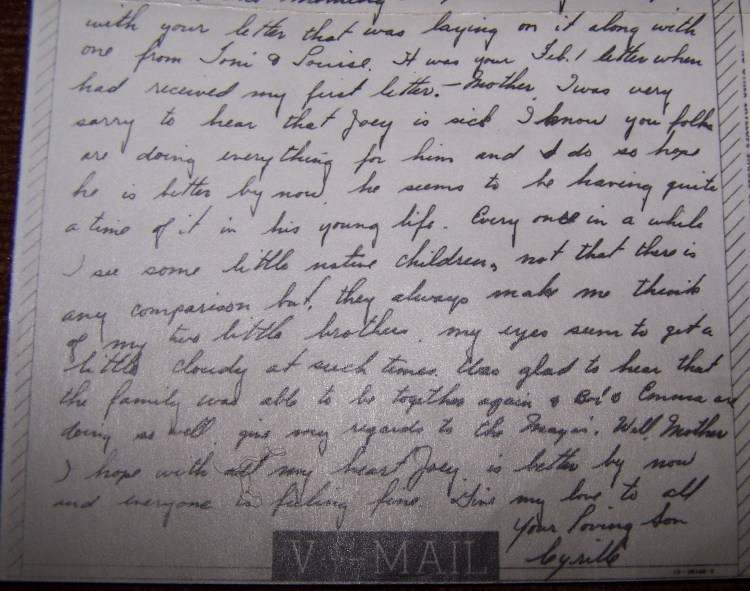 with your letter that was laying on it along with
one from Toni & Louise. It was your Feb. 1 letter when
had received my first letter. - Mother, I was very
sorry to hear that Joey is sick I know you folks
are doing everything for him and I do so hope
he is better by now. he seems to be having quite
a time of it in his young life. Every once in a while
I see some little native children, not that there is
any comparison but, they always make me think
of my two little brothers. my eyes seem to get a
little cloudy at such times. Was glad to hear that
the family was able to be together again & & Emma are
doing so well. give my regards to the Well, Mother
I hope with all my heart Joey is better by now
and everyone is feeling fine. Give my love to all
Your Loving Son
Cyrille
V-MAIL